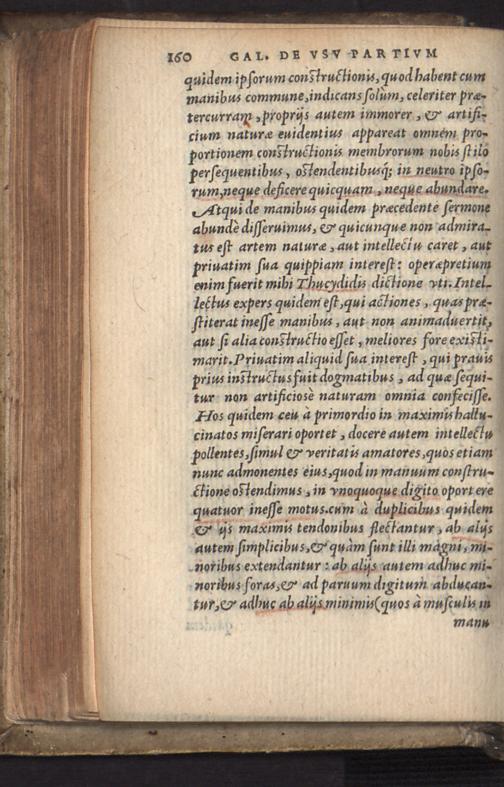 160 GAL. DE VSV PARTIVM
quidem ipsorum constructionis, quod habent cum
manibus commune, indicans solùm, celeriter præ-
tercurram, proprijs autem immorer, & artifi-
cium naturæ euidentius appareat omnem pro-
portionem constructionis membrorum nobis stilo
persequentibus, ostendentibusq; in neutro ipso-
rum, neque deficere quicquam, neque abundare.
Atqui de manibus quidem præcedente sermone
abundè disseruimus, & quicunque non admira-
tus est artem naturæ, aut intellectu caret, aut
priuatim sua quippiam interest: operæpretium
enim fuerit mihi Thucydidis dictione vti. Intel-
lectus expers quidem est, qui actiones, quas præ-
stiterat inesse manibus, aut non animaduertit,
aut si alia constructio esset, meliores fore existi-
marit. Priuatim aliquid sua interest, qui prauis
prius instructus fuit dogmatibus, ad quæ sequi-
tur non artificiosè naturam omnia confecisse.
Hos quidem ceu à primordio in maximis hallu-
cinatos miserari oportet, docere autem intellectu
pollentes, simul & veritatis amatores, quos etiam
nunc admonentes eius, quod in manuum constru-
ctione ostendimus, in vnoquoque digito oportere
quatuor inesse motus. cum à duplicibus quidem
& ijs maximis tendonibus flectantur, ab alijs
autem simplicibus, & quàm sunt illi magni, mi-
noribus extendantur: ab alijs autem adhuc mi-
noribus foras, & ad paruum digitum abducan-
tur, & adhuc ab alijs minimis (quos à musculis in
manu